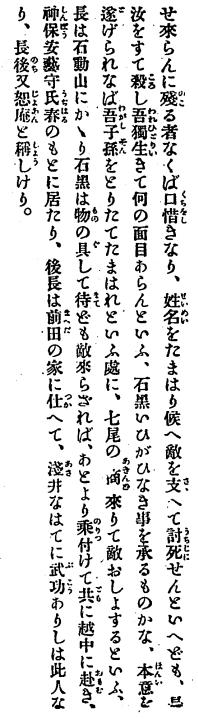 せ來らんに殘る者なくば口惜きなり、姓名をたまはり候へ敵を支へて討死せんといへども、旦
汝をすて殺し吾獨生きて何の面目あらんといふ、石黑いひがひなき事を承るものかな、本意を
遂げられなば吾子孫をとりたてたまはれといふ處に、七尾の商來りて敵おしよするといふ、
長は石動山にかゝり石黑は物の具して待ども敵來らざれば、あとより乘付けて共に越中に赴き、
神保安藝守氏春のもとに居たり、後長は前田の家に仕へて、淺井なはてに武功ありしは此人な
り、長後又恕庵と稱しけり。